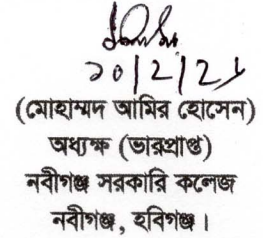 (মোহাম্মদ আমির হোসেন)
অধ্যক্ষ (ভারপ্রাপ্ত)
নবীগঞ্জ সরকারি কলেজ
নবীগঞ্জ, হবিগঞ্জ।